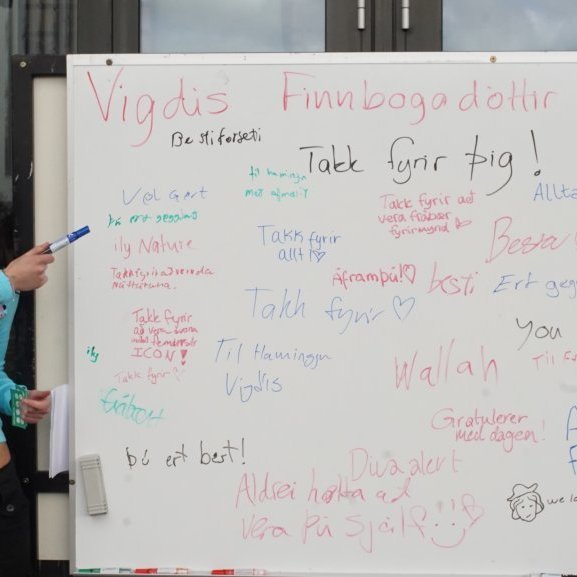 Vigdís Finnbogadóttir
Besti forseti
Takk fyrir þig!
til hamingju
með afmælið
Takk fyrir að
vera frábær
fyrirmynd ♡
Vel Gert
ily Nature
Takk fyrir
allt!♡
Besta
Takk fyrir að vernda
náttúruna.
Áfram þú!♡
besti
Ert geg
Takk fyrir ♡
Takk fyrir
að vera svona
ICON!
You
Til Hamingju
Vigdís
ily
Takk fyrir ♡
Wallah
Til
Frábært
Gratulerer
med dagen!
þú ert best!
Diva alert
Aldrei hætta að
vera þú Sjálf
we lo